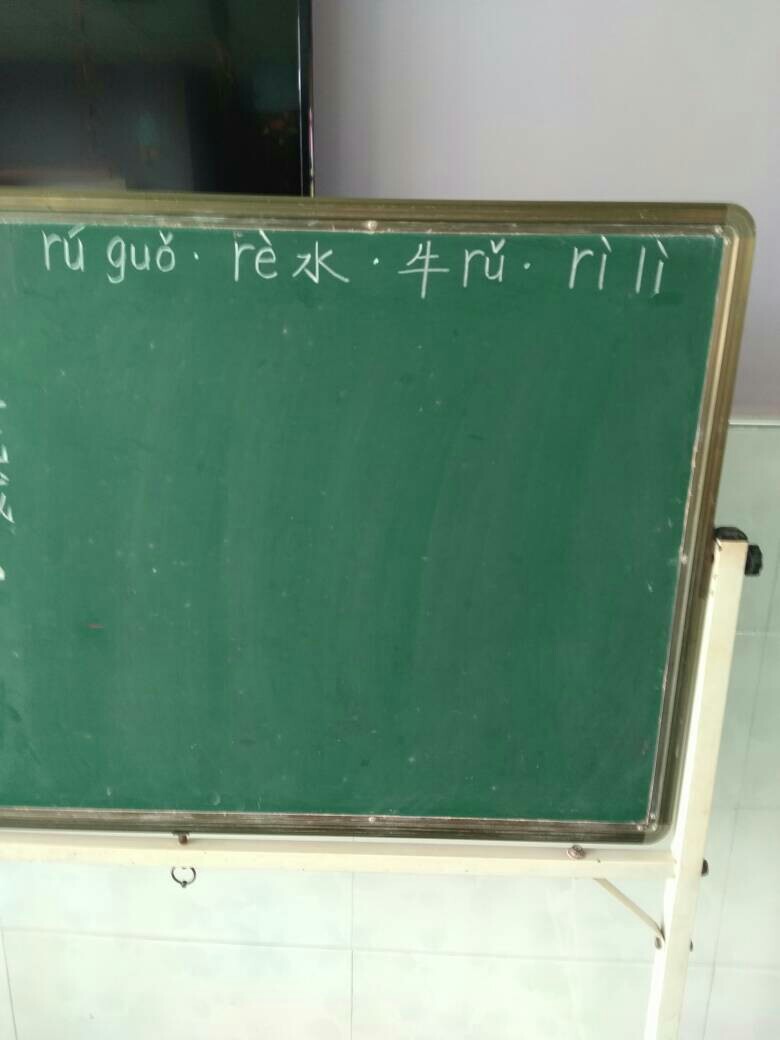 rú guǒ · rè 水 · 牛 rǔ · rì lì